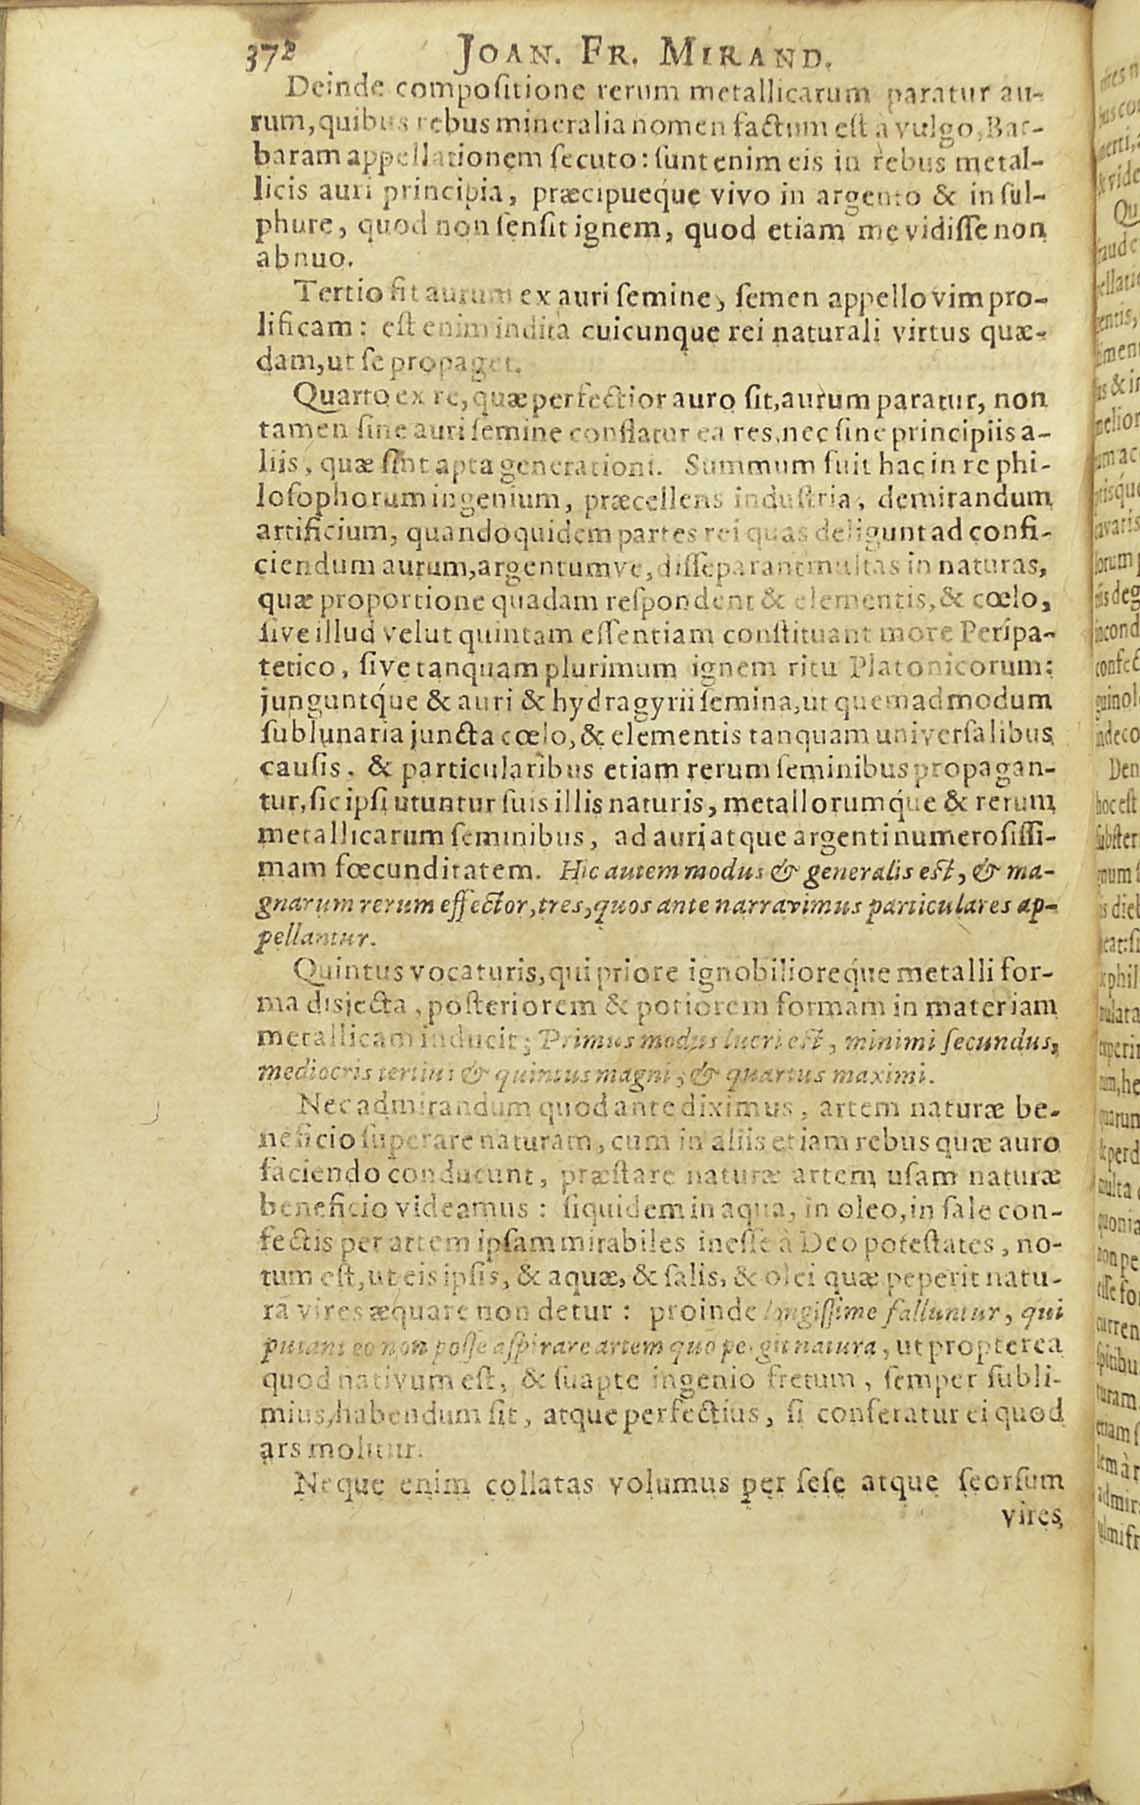 372 JOAN. FR. MIRAND.
Deinde compositione rerum metallicarum paratur au-
rum, quibus rebus mineralia nomen factum est à vulgo, Bar-
baram appellationem secuto: sunt enim eis in rebus metal-
licis auri principia, præcipueque vivo in argento & in sul-
phure, quod non sensit ignem, quod etiam me vidisse non
abnuo.
Tertio fit aurum ex auri semine, semen appello vim pro-
lificam: est enim indita cuicunque rei naturali virtus quæ-
dam, ut se propaget.
Quarto ex re, quæ perfectior auro sit, aurum paratur, non
tamen sine auri semine conflatur ea res, nec sine principiis a-
liis, quæ sint apta generationi. Summum fuit hac in re phi-
losophorum ingenium, præcellens industria, demirandum
artificium, quandoquidem partes rei quas deligunt ad confi-
ciendum aurum, argentumve, disseparant multas in naturas,
quæ proportione quadam respondent & elementis, & cœlo,
sive illud velut quintam essentiam constituant more Peripa-
tetico, sive tanquam plurimum ignem ritu Platonicorum:
junguntq́ue & auri & hydragyrii semina, ut quemadmodum
sublunaria juncta cœlo, & elementis tanquam universalibus
causis, & particularibus etiam rerum seminibus propagan-
tur, sic ipsi utuntur suis illis naturis, metallorumq́ue & rerum
metallicarum seminibus, ad auri atque argenti numerosissi-
mam fœcunditatem. Hic autem modus & generalis est, & ma-
gnarum rerum effector, tres, quos ante narravimus particulares ap-
pellantur.
Quintus vocatur is, qui priore ignobilioreq́ue metalli for-
ma disjecta, posteriorem & potiorem formam in materiam
metallicam inducit; Primus modus lucri est, minimi secundus,
mediocris tertius & quintus magni, & quartus maximi.
Nec admirandum quod ante diximus, artem naturæ be-
neficio superare naturam, cum in aliis etiam rebus quæ auro
faciendo conducunt, præstare naturæ artem usam naturæ
beneficio videamus: siquidem in aqua, in oleo, in sale con-
fectis per artem ipsam mirabiles inesse à Deo potestates, no-
tum est, ut eis ipsis, & aquæ, & salis, & olei quæ peperit natu-
ra vires æquare non detur: proinde longissime falluntur, qui
putant eo non posse aspirare artem quo pergit natura, ut propterea
quod nativum est, & suapte ingenio fretum, semper subli-
mius, habendum sit, atque perfectius, si conferatur ei quod
ars molitur.
Neque enim collatas volumus per sese atque seorsum
vires